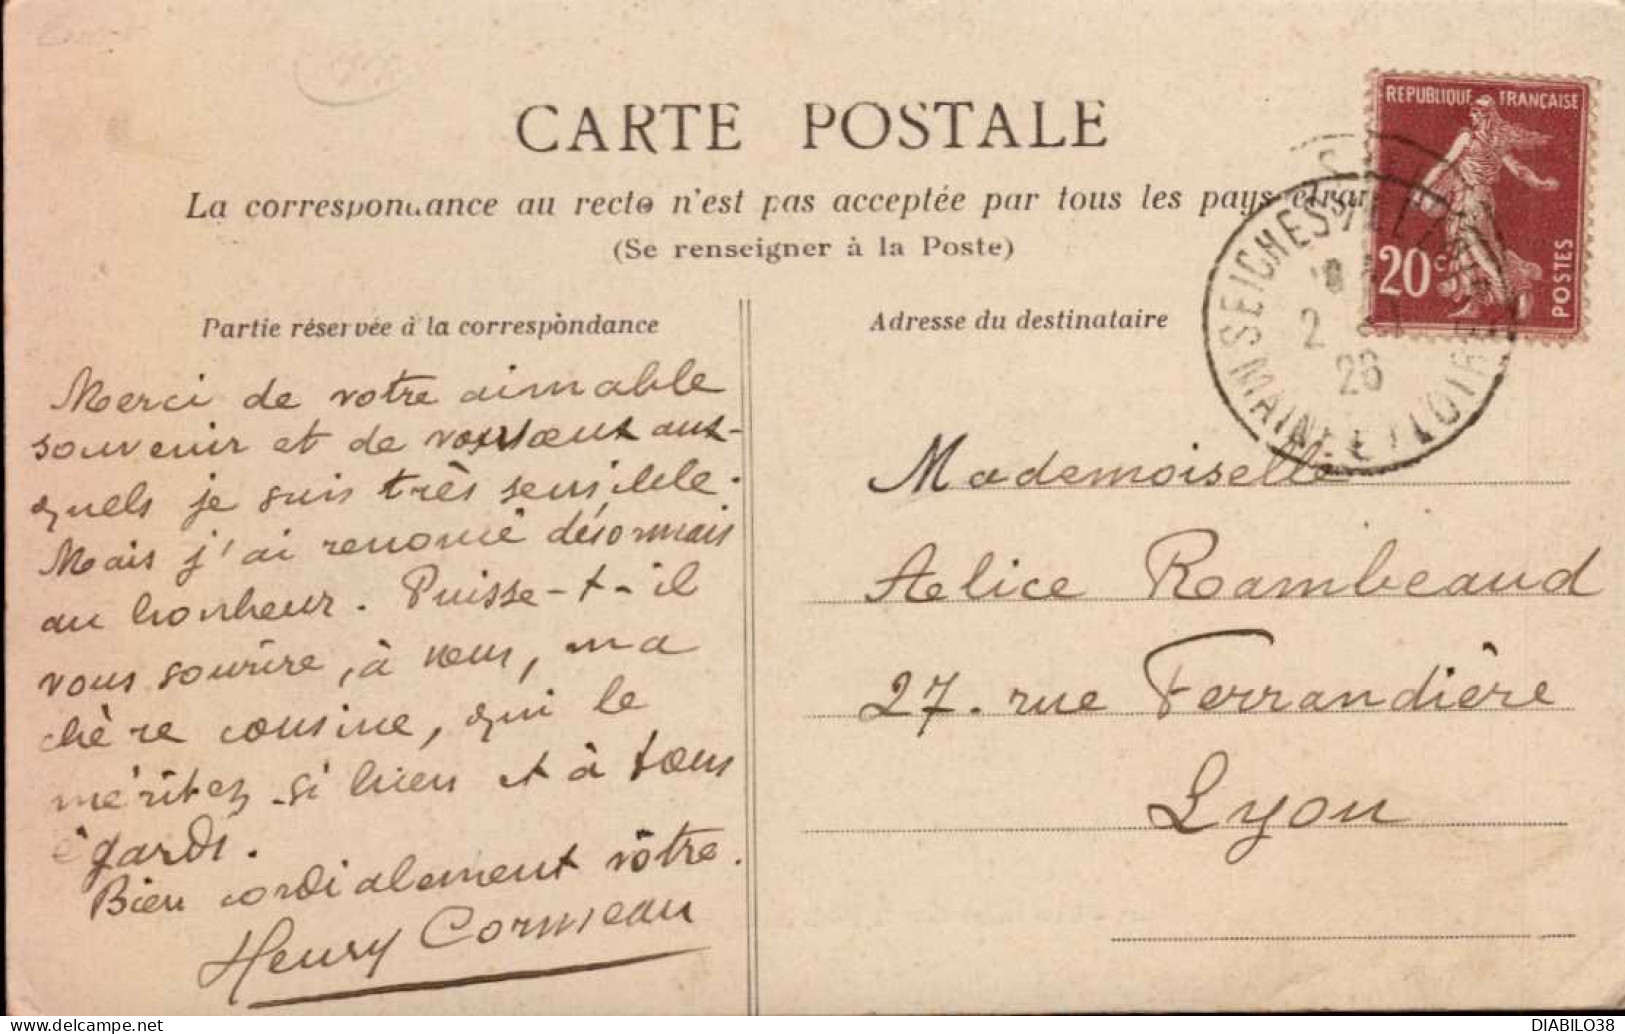 CARTE POSTALE
La correspondance au recto n'est pas acceptée par tous les pays étran
(Se renseigner à la Poste)
REPUBLIQUE FRANÇAISE
20c
POSTES
SEICHES
MAINE ET LOIRE
2
26
Partie réservée à la correspondance
Merci de votre aimable
souvenir et de vos vœux aux-
quels je suis très sensible.
Mais j'ai renoncé désormais
au bonheur. Puisse-t-il
vous sourire, à vous, ma
chère cousine, qui le
méritez si bien et à tous
égards.
Bien cordialement vôtre.
Henry Cormeau
Adresse du destinataire
Mademoiselle
Alice Rambeaud
27. rue Ferrandière
Lyon
DIABILO38